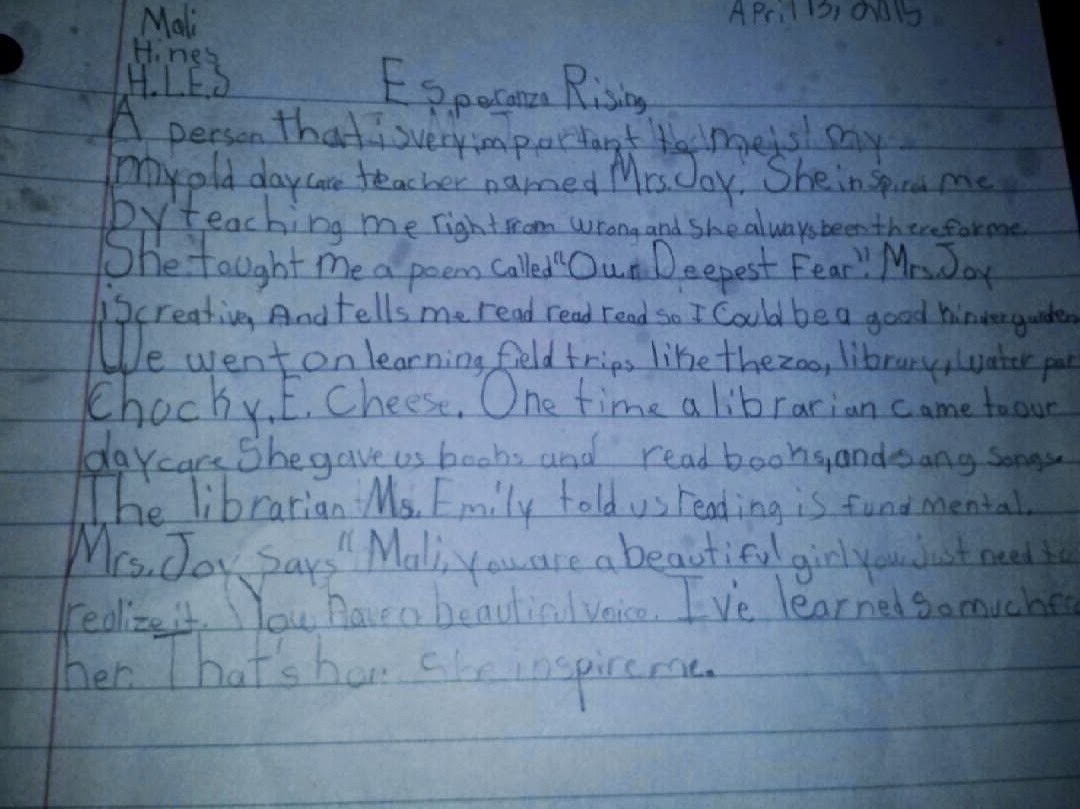 April 13, 2015
Mali
Hines
H.L.E.S
Esperanza Rising
A person that is very important to me is my
my old daycare teacher named Mrs. Joy. She inspired me
by teaching me right from wrong and she always been there for me.
She tought me a poem called "Our Deepest Fear". Mrs. Joy
is creative, And tells me read read read so I Could be a good kindergarten
We went on learning field trips like the zoo, library, water par
Chocky. E. Cheese. One time a librarian came to our
daycare She gave us books and read books, and sang songs.
The librarian Ms. Emily told us reading is fundmental.
Mrs. Joy says "Mali, you are a beautiful girl you just need to
realize it. You have a beautiful voice. I've learned so much
her. That's how She inspire me.